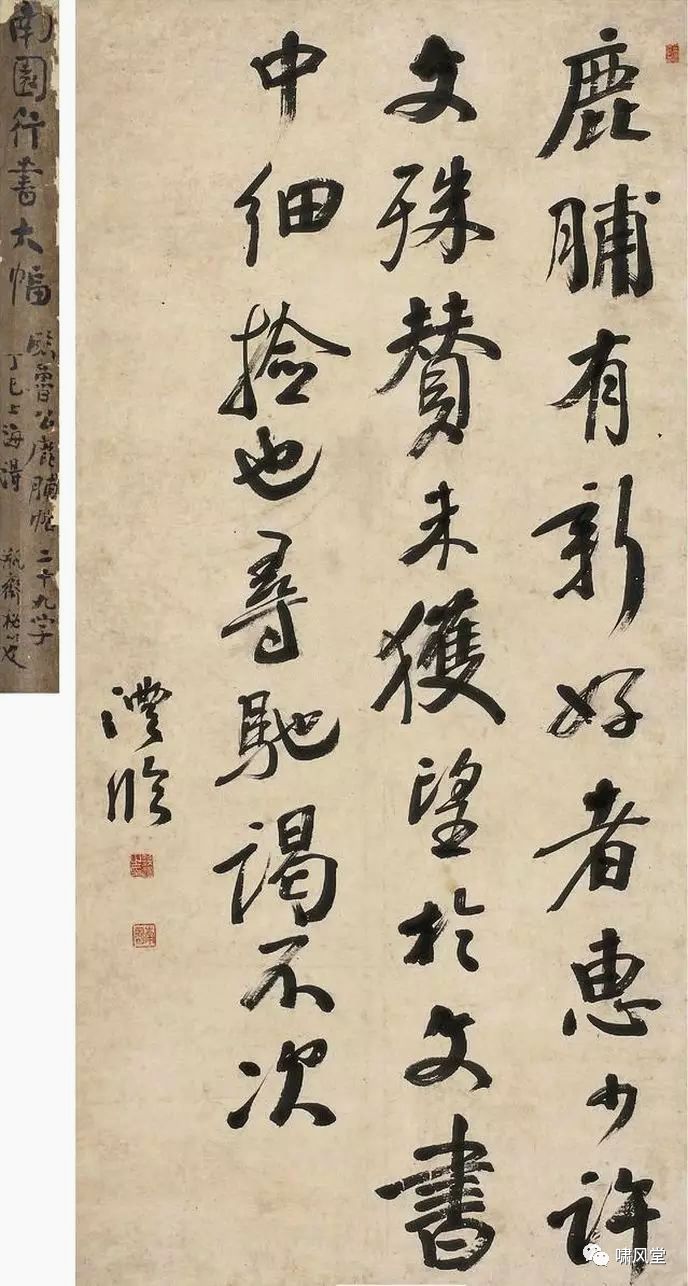 鹿脯有新好者惠少許
文殊贊未獲望於文書
中細撿也尋馳謁不次
澧臨
南園行書大幅
臨魯公鹿脯帖 二十九字
丁巳上海得 瓶齋秘笈
啸风堂